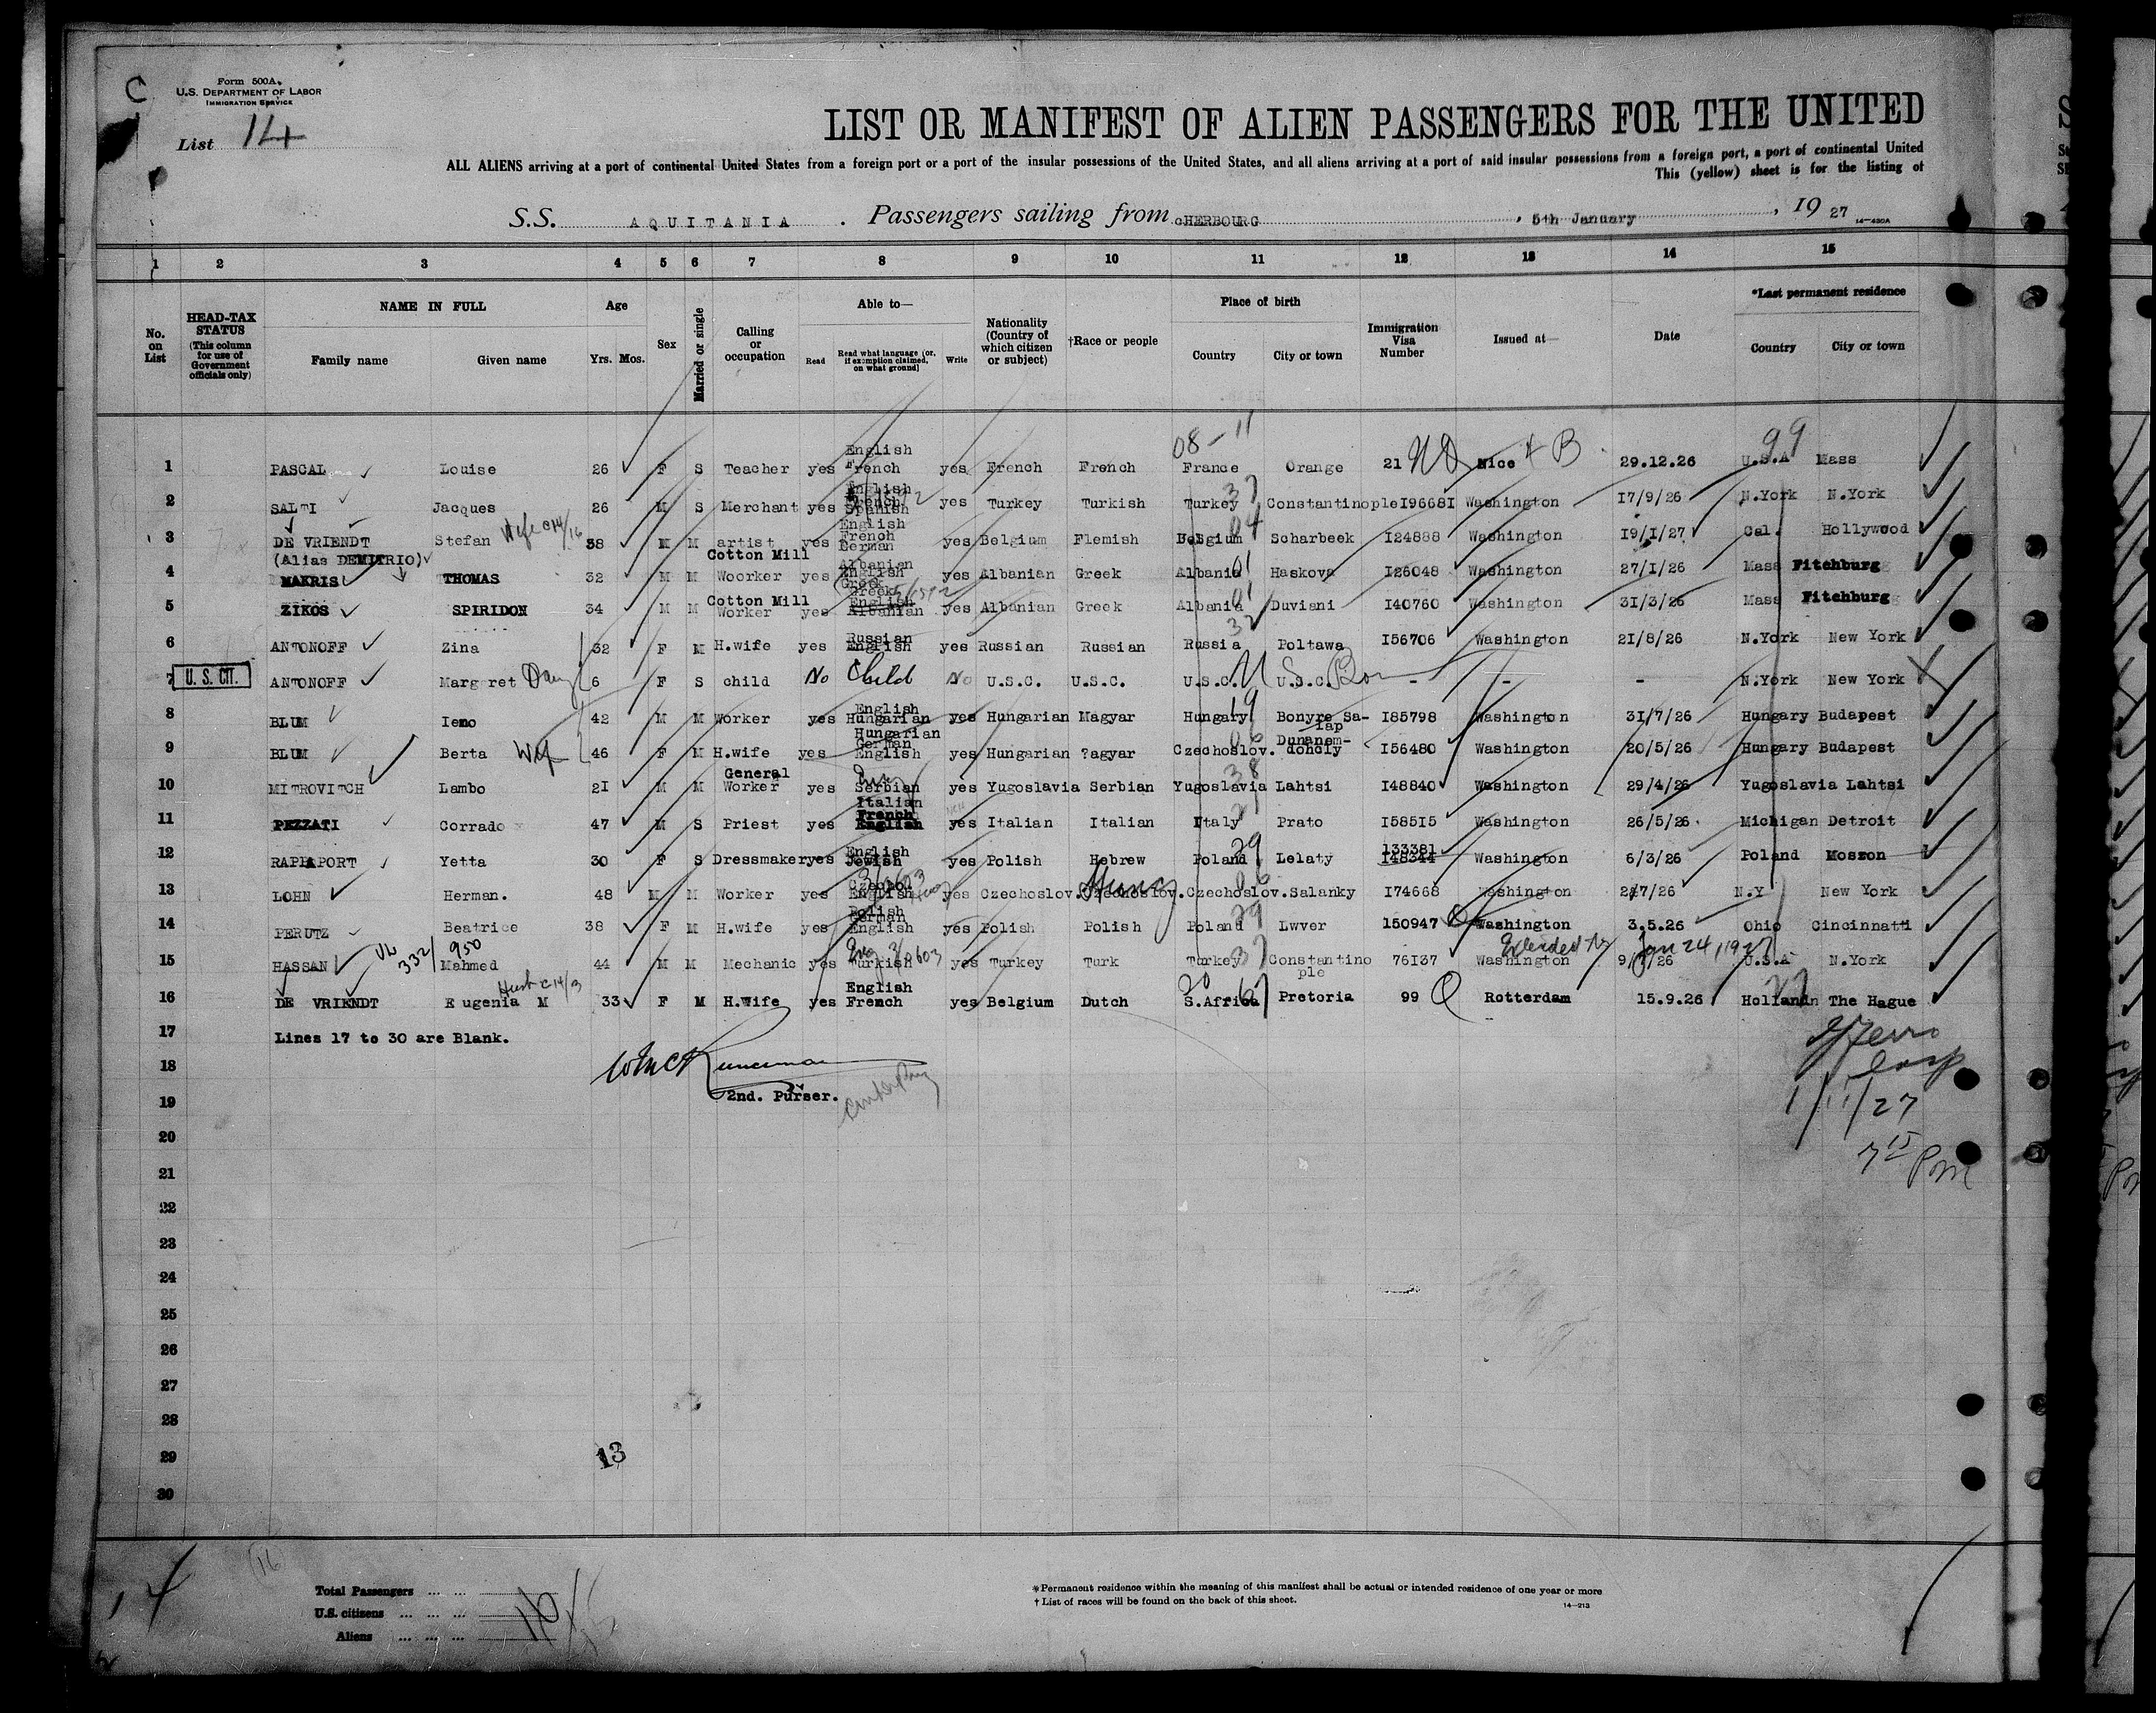 C
Form 500A.
U.S. DEPARTMENT OF LABOR
IMMIGRATION SERVICE
List 14
LIST OR MANIFEST OF ALIEN PASSENGERS FOR THE UNITED
ALL ALIENS arriving at a port of continental United States from a foreign port or a port of the insular possessions of the United States, and all aliens arriving at a port of said insular possessions from a foreign port, a port of continental United
This (yellow) sheet is for the listing of
S.S. AQUITANIA. Passengers sailing from CHERBOURG, 5th January, 19 27
14—430A
1 2 3 4 5 6 7 8 9 10 11 12 13 14 15
No. on List
HEAD-TAX STATUS (This column for use of Government officials only)
NAME IN FULL Family name Given name
Age Yrs. Mos.
Sex
Married or single
Calling or occupation
Able to— Read Read what language [or, if exemption claimed, on what ground] Write
Nationality (Country of which citizen or subject)
†Race or people
Place of birth Country City or town
Immigration Visa Number
Issued at—
Date
*Last permanent residence Country City or town
08-11 99
1 PASCAL Louise 26 F S Teacher yes English French yes French French France Orange 21 Nice 29.12.26 U.S.A Mass
2 SALTI Jacques 26 M S Merchant yes English French Spanish yes Turkey Turkish Turkey Constantinople I9668I Washington I7/9/26 N.York N.York
3 DE VRIENDT Stefan Wife c14/16 38 M M artist yes English French German yes Belgium Flemish Belgium Scharbeek I24888 Washington I9/I/27 Cal. Hollywood
(Alias DEMITRIO)
4 MAKRIS THOMAS 32 M M Cotton Mill Woorker yes Albanian English Greek yes Albanian Greek Albania Haskova I26048 Washington 27/I/26 Mass Fitchburg
5 ZIKOS SPIRIDON 34 M M Cotton Mill Worker yes Greek English Albanian yes Albanian Greek Albania Duviani I40760 Washington 3I/3/26 Mass Fitchburg
6 ANTONOFF Zina 32 F M H.wife yes Russian English yes Russian Russian Russia Poltawa I56706 Washington 2I/8/26 N.York New York
7 U.S. CIT. ANTONOFF Margaret Dau 6 F S child No Child No U.S.C. U.S.C. U.S.C. U.S.C. U S Born - - - N.York New York
8 BLUM Ieno 42 M M Worker yes English Hungarian yes Hungarian Magyar Hungary Bonyre Sa-lap I85798 Washington 3I/7/26 Hungary Budapest
9 BLUM Berta Wife 46 F M H.wife yes Hungarian German English yes Hungarian ?agyar Czechoslov. Dunanem-dohcly I56480 Washington 20/5/26 Hungary Budapest
10 MITROVITCH Lambo 2I M M General Worker yes Eng Serbian yes Yugoslavia Serbian Yugoslavia Lahtsi I48840 Washington 29/4/26 Yugoslavia Lahtsi
11 PEZZATI Corrado 47 M S Priest yes Italian French English yes Italian Italian Italy Prato I585I5 Washington 26/5/26. Michigan Detroit
12 RAPHAPORT Yetta 30 F S Dressmaker yes English Jewish yes Polish Hebrew Poland Lelaty 133381 I48344 Washington 6/3/26 Poland Moszon
13 LOHN Herman. 48 M M Worker yes Czechol English yes Czechoslov. Czechoslov. Czechoslov. Salanky I74668 Washington 2/7/26 N.Y New York
14 PERUTZ Beatrice 38 F M H.wife yes Polish German English yes Polish Polish Poland Lwver 150947 Washington 3.5.26 Ohio Cincinnatti
15 HASSAN 332/950 Mahmed 44 M M Mechanic yes Eng Turkish yes Turkey Turk Turkey Constantinople 76I37 Washington Extended to Jan 24, 1927 U.S.A N.York
16 DE VRIENDT Eugenia M Husb c14/3 33 F M H.Wife yes English French yes Belgium Dutch S.Africa Pretoria 99 Rotterdam 15.9.26 Holland The Hague
17 Lines 17 to 30 are Blank.
18
2nd. Purser.
19
20
21
22
23
24
25
26
27
28
29
30
1/11/27
7 15 Pm
13
14
16
Total Passengers ... ...
U.S. citizens ... ... ...
Aliens ... ... ...
*Permanent residence within the meaning of this manifest shall be actual or intended residence of one year or more
† List of races will be found on the back of this sheet.
14—213